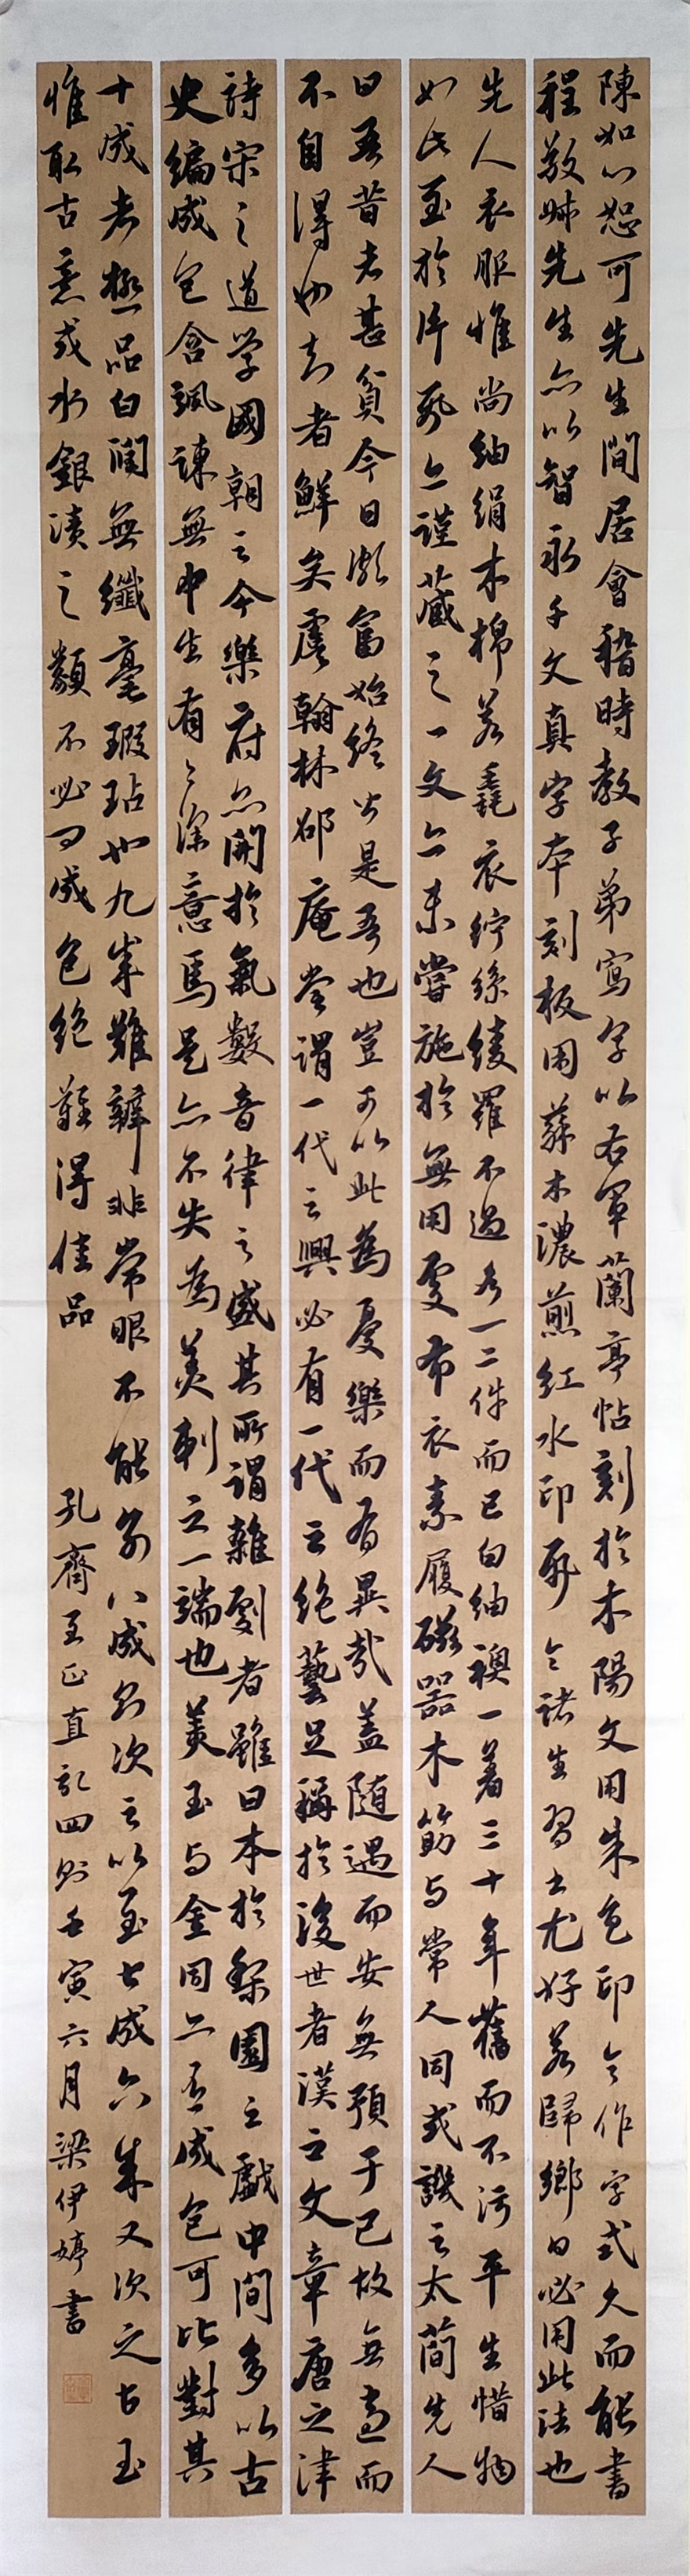 陳如心恕可先生間居會稽時教子弟寫字以右軍蘭亭帖刻於木陽文用朱色印令作字式久而能書
程敬叔先生亦以智永千文真字本刻板用蘇木濃煎紅水印帋令諸生習之尤好若歸鄉日必用此法也
先人衣服惟尚紬絹木棉若毳衣紵絲綾羅不過各一二件而已白紬襖一着三十年舊而不污平生惜物
如此至於片帋亦謹藏之一文亦未嘗施於無用處布衣素履磁器木筯與常人同或譏之太簡先人
曰吾昔者甚貧今日頗富始終皆是吾也豈可以此為憂樂而有異哉蓋随遇而安無預于己故無適而
不自得也知者鮮矣虞翰林邵庵嘗謂一代之興必有一代之絶藝足稱於後世者漢之文章唐之律
詩宋之道学國朝之今樂府亦開於氣數音律之盛其所謂雜劇者雖曰本於梨園之戲中間多以古
史編成包含諷諫無中生有有深意焉是亦不失為美刺之一端也美玉与金同亦有成色可比對其
十成者極品白潤無纖毫瑕玷也九成難辨非常眼不能別八成則次之以至七成六成又次之古玉
惟取古意或水銀漬之類不必問成色絕難得佳品
孔齊至正直記四則壬寅六月梁伊婷書